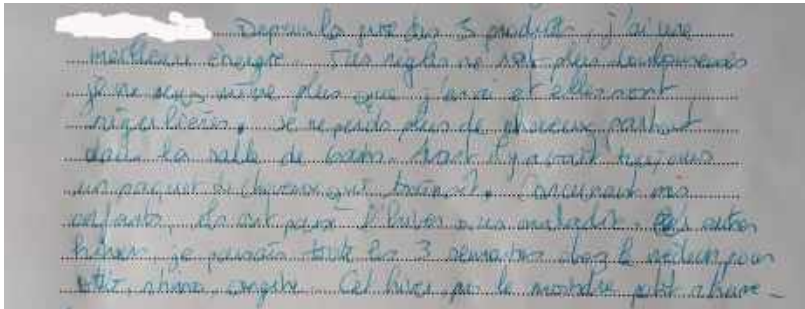 Depuis la prise des 3 produits, j'ai une
meilleure énergie. Mes règles ne sont plus douloureuses
je ne sens même plus que j'arrive et elles sont
régulières. Je ne perds plus de cheveux partout
dans la salle de bain. Avant il y avait toujours
un paquet de cheveux qui traînait. Concernant mes
enfants, ils ont passé l'hiver sans maladie. Les autres
hivers je passais toute les 3 semaines chez le médecin pour
otite, rhume, angine. Cet hiver, pas le moindre petit rhume.